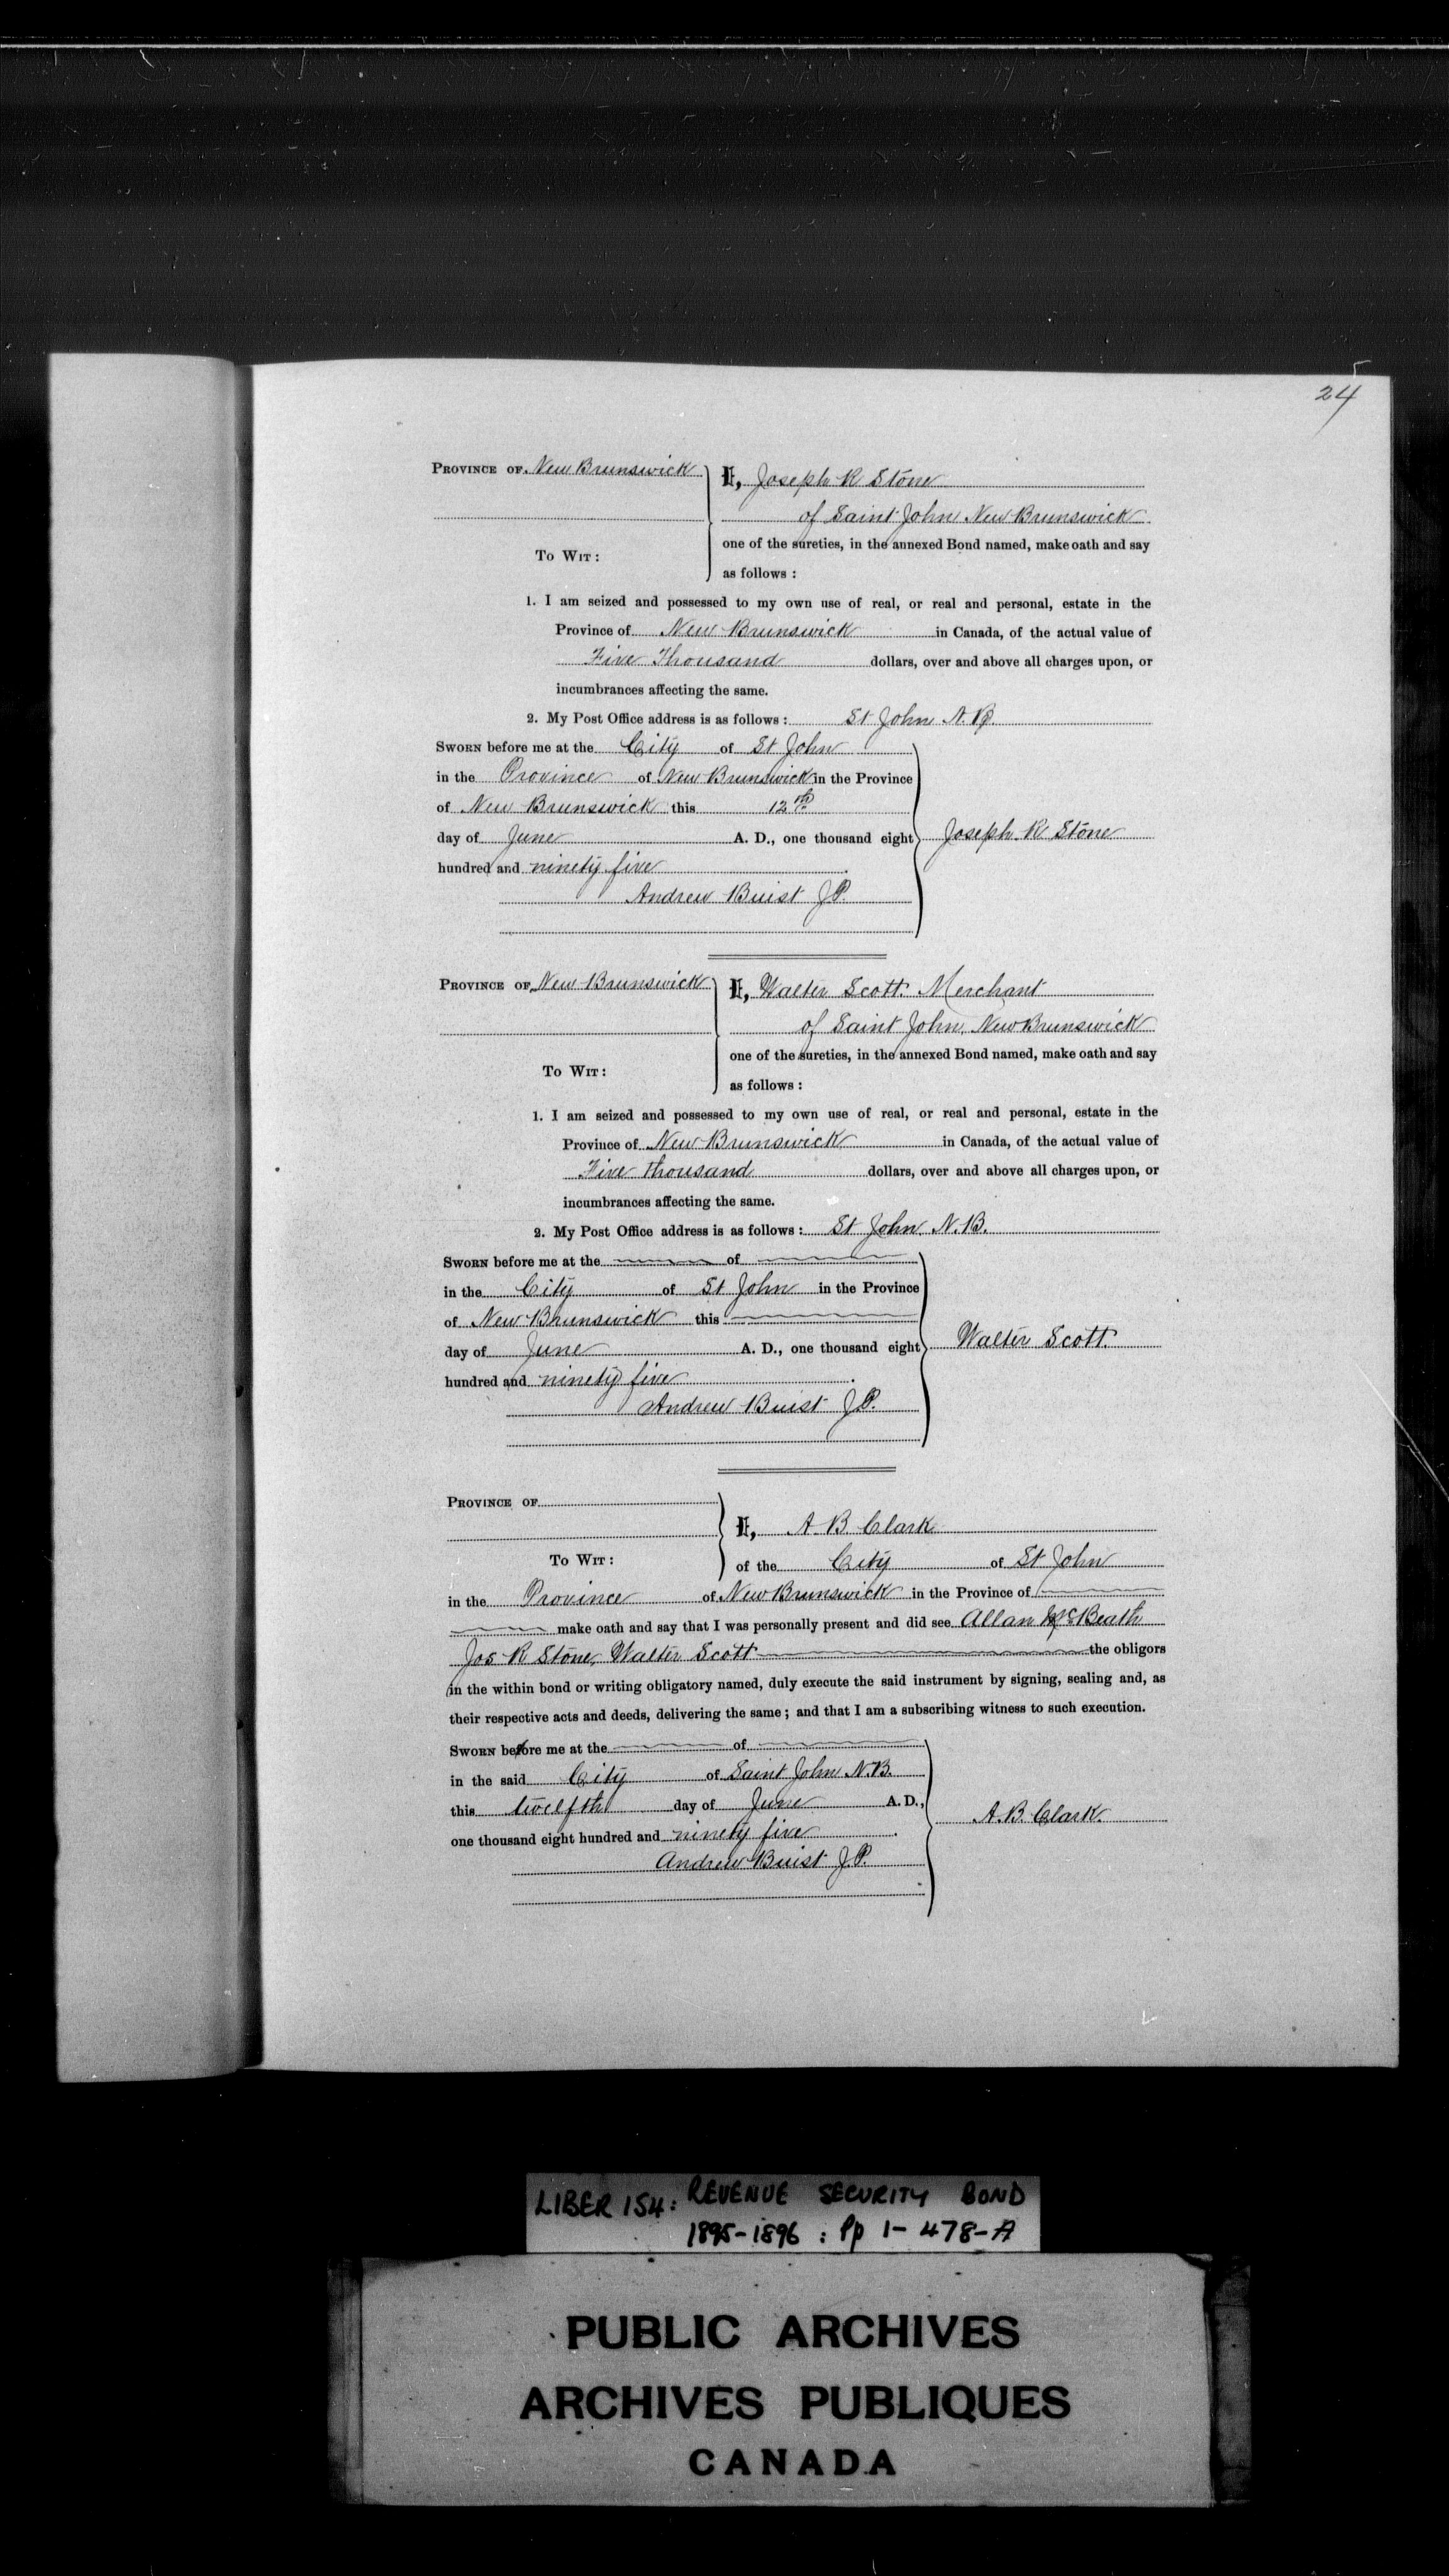 24
PROVINCE OF New Brunswick
I, Joseph R Stone
of Saint John New Brunswick
one of the sureties, in the annexed Bond named, make oath and say
TO WIT :
as follows :
1. I am seized and possessed to my own use of real, or real and personal, estate in the
Province of New Brunswick in Canada, of the actual value of
Five Thousand dollars, over and above all charges upon, or
incumbrances affecting the same.
2. My Post Office address is as follows : St John N.B.
SWORN before me at the City of St John
in the Province of New Brunswick in the Province
of New Brunswick this 12th
day of June A. D., one thousand eight
Joseph R Stone
hundred and ninety five
Andrew Buist JP.
PROVINCE OF New Brunswick
I, Walter Scott Merchant
of Saint John, New Brunswick
one of the sureties, in the annexed Bond named, make oath and say
TO WIT :
as follows :
1. I am seized and possessed to my own use of real, or real and personal, estate in the
Province of New Brunswick in Canada, of the actual value of
Five thousand dollars, over and above all charges upon, or
incumbrances affecting the same.
2. My Post Office address is as follows : St John N.B.
SWORN before me at the of
in the City of St John in the Province
of New Brunswick this
day of June A. D., one thousand eight
Walter Scott.
hundred and ninety five
Andrew Buist JP.
PROVINCE OF
I, A B Clark
TO WIT :
of the City of St John
in the Province of New Brunswick in the Province of
make oath and say that I was personally present and did see Allan McBeath
Jos R Stone, Walter Scott the obligors
in the within bond or writing obligatory named, duly execute the said instrument by signing, sealing and, as
their respective acts and deeds, delivering the same ; and that I am a subscribing witness to such execution.
SWORN before me at the of
in the said City of Saint John N.B.
this twelfth day of June A. D.,
A.B. Clark.
one thousand eight hundred and ninety five
Andrew Buist J.P.
LIBER 154 : REVENUE SECURITY BOND
1895-1896 : Pp 1- 478-A
PUBLIC ARCHIVES
ARCHIVES PUBLIQUES
CANADA